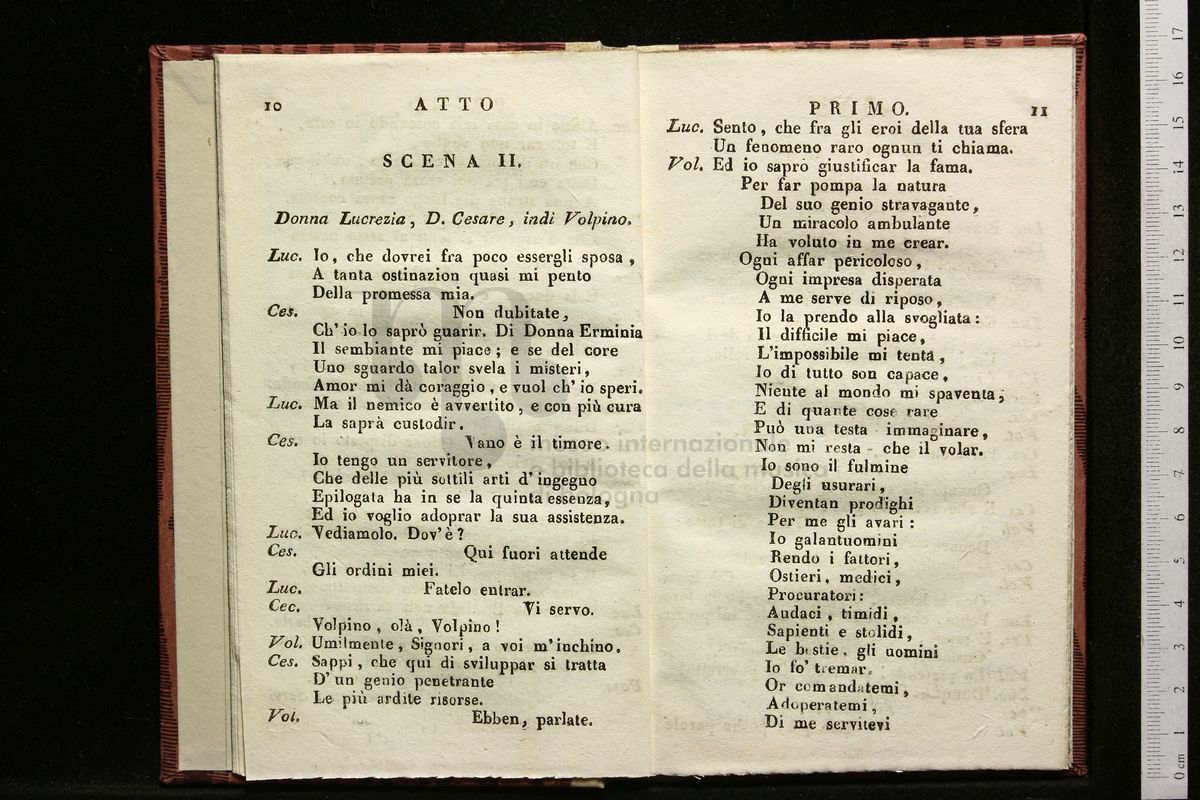 10 ATTO
SCENA II.
Donna Lucrezia, D. Cesare, indi Volpino.
Luc. Io, che dovrei fra poco essergli sposa,
A tanta ostinazion quasi mi pento
Della promessa mia.
Ces. Non dubitate,
Ch' io lo saprò guarir. Di Donna Erminia
Il sembiante mi piace; e se del core
Uno sguardo talor svela i misteri,
Amor mi dà coraggio, e vuol ch' io speri.
Luc. Ma il nemico è avvertito, e con più cura
La saprà custodir.
Ces. Vano è il timore.
Io tengo un servitore,
Che delle più sottili arti d' ingegno
Epilogata ha in se la quinta essenza,
Ed io voglio adoprar la sua assistenza.
Luc. Vediamolo. Dov' è?
Ces. Qui fuori attende
Gli ordini miei.
Luc. Fatelo entrar.
Cec. Vi servo.
Volpino, olà, Volpino!
Vol. Umilmente, Signori, a voi m' inchino.
Ces. Sappi, che qui di sviluppar si tratta
D' un genio penetrante
Le più ardite risorse.
Vol. Ebben, parlate.
PRIMO. 11
Luc. Sento, che fra gli eroi della tua sfera
Un fenomeno raro ognun ti chiama.
Vol. Ed io saprò giustificar la fama.
Per far pompa la natura
Del suo genio stravagante,
Un miracolo ambulante
Ha voluto in me crear.
Ogni affar pericoloso,
Ogni impresa disperata
A me serve di riposo,
Io la prendo alla svogliata:
Il difficile mi piace,
L'impossibile mi tenta,
Io di tutto son capace,
Niente al mondo mi spaventa;
E di quante cose rare
Può una testa immaginare,
Non mi resta che il volar.
Io sono il fulmine
Degli usurari,
Diventan prodighi
Per me gli avari:
Io galantuomini
Rendo i fattori,
Ostieri, medici,
Procuratori:
Audaci, timidi,
Sapienti e stolidi,
Le bestie, gli uomini
Io fo' tremar.
Or comandatemi,
Adoperatemi,
Di me servitevi
museo internazionale
e biblioteca della musica
0 cm 1 2 3 4 5 6 7 8 9 10 11 12 13 14 15 16 17